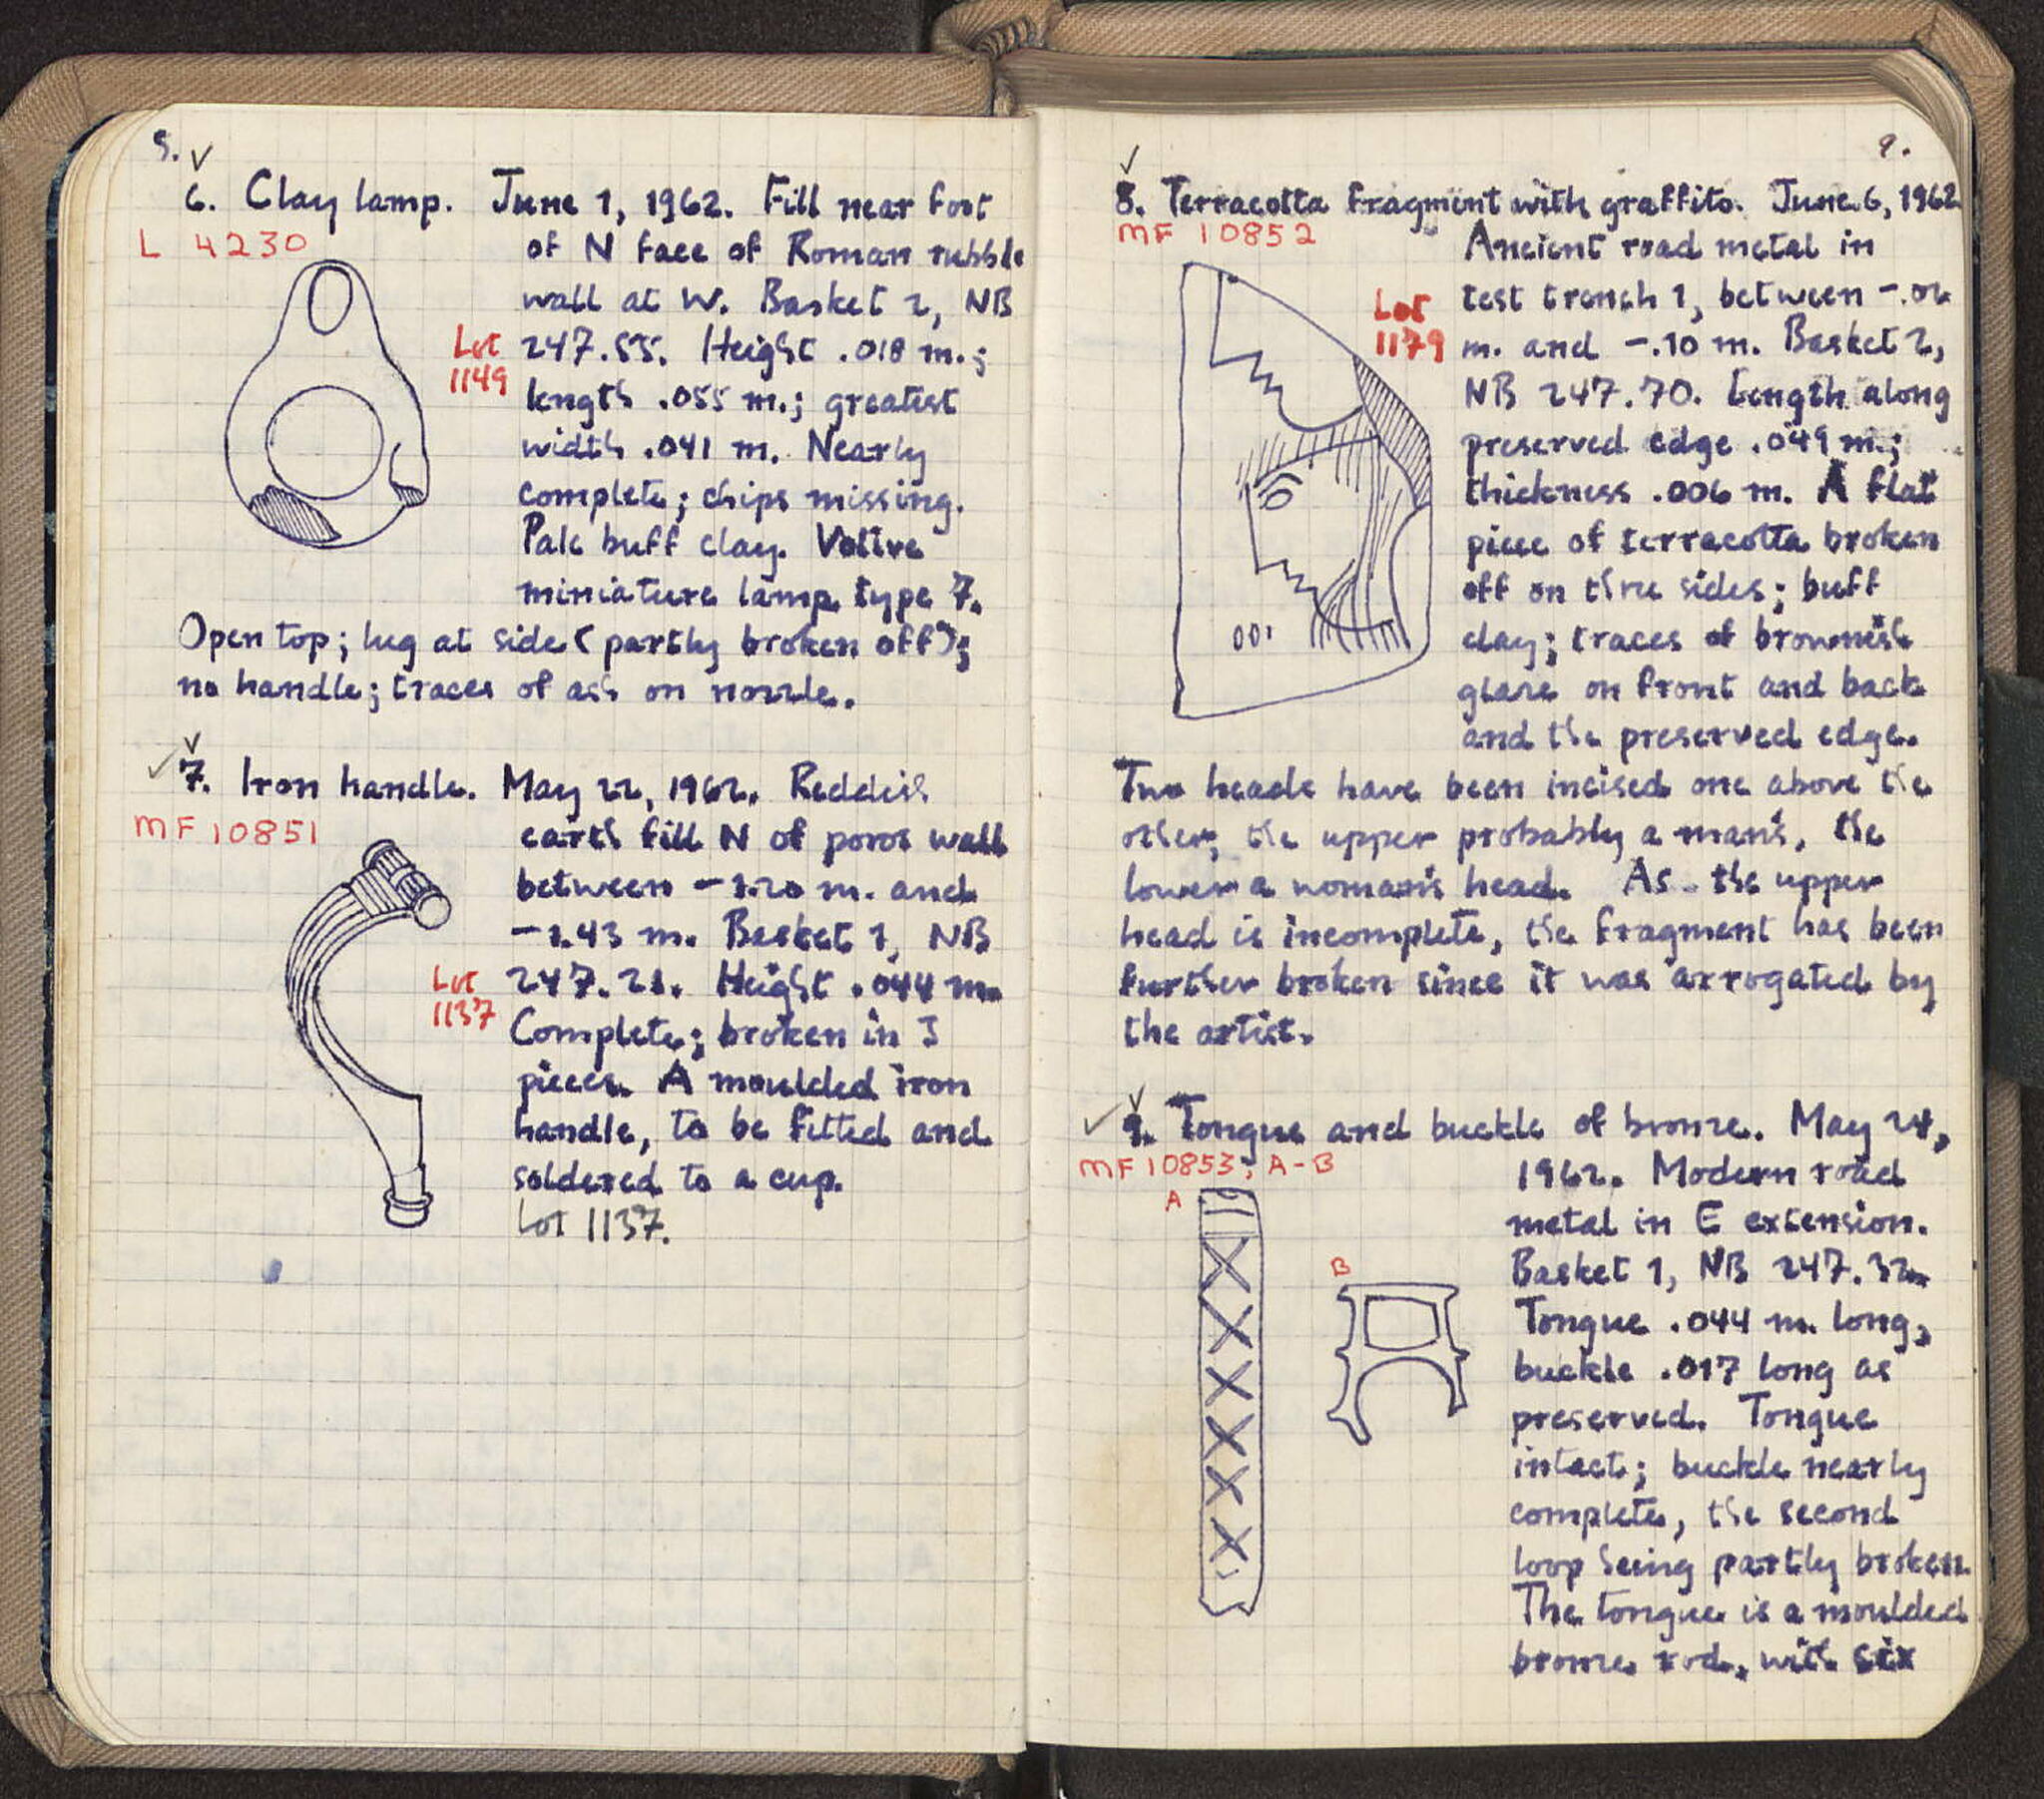 8.
6. Clay lamp. June 1, 1962. Fill near foot
L 4230
of N face of Roman rubble
wall at W. Basket 2, NB
Lot 1149
247.55. Height .018 m.;
length .055 m.; greatest
width .041 m. Nearly
complete; chips missing.
Pale buff clay. Votive
miniature lamp type 7.
Open top; lug at side (partly broken off);
no handle; traces of ash on nozzle.
7. Iron handle. May 22, 1962. Reddish
MF 10851
earth fill N of poros wall
between -1.20 m. and
-1.43 m. Basket 1, NB
Lot 1137
247.21. Height .044 m.
Complete; broken in 3
pieces. A moulded iron
handle, to be fitted and
soldered to a cup.
Lot 1137.
9.
8. Terracotta fragment with graffito. June 6, 1962
MF 10852
Ancient road metal in
Lot 1179
test trench 1, between
m. and -.10 m. Basket 2,
NB 247.70. Length along
preserved edge .049 m.;
thickness .006 m. A flat
piece of terracotta broken
off on three sides; buff
clay; traces of brownish
glaze on front and back
and the preserved edge.
Two heads have been incised one above the
other, the upper probably a man's, the
lower a woman's head. As the upper
head is incomplete, the fragment has been
further broken since it was arrogated by
the artist.
9. Tongue and buckle of bronze. May 24,
MF 10853; A-B
1962. Modern road
A
metal in E extension.
B
Basket 1, NB 247.32.
Tongue .044 m. long,
buckle .017 long as
preserved. Tongue
intact; buckle nearly
complete, the second
loop being partly broken.
The tongue is a moulded
bronze rod, with six